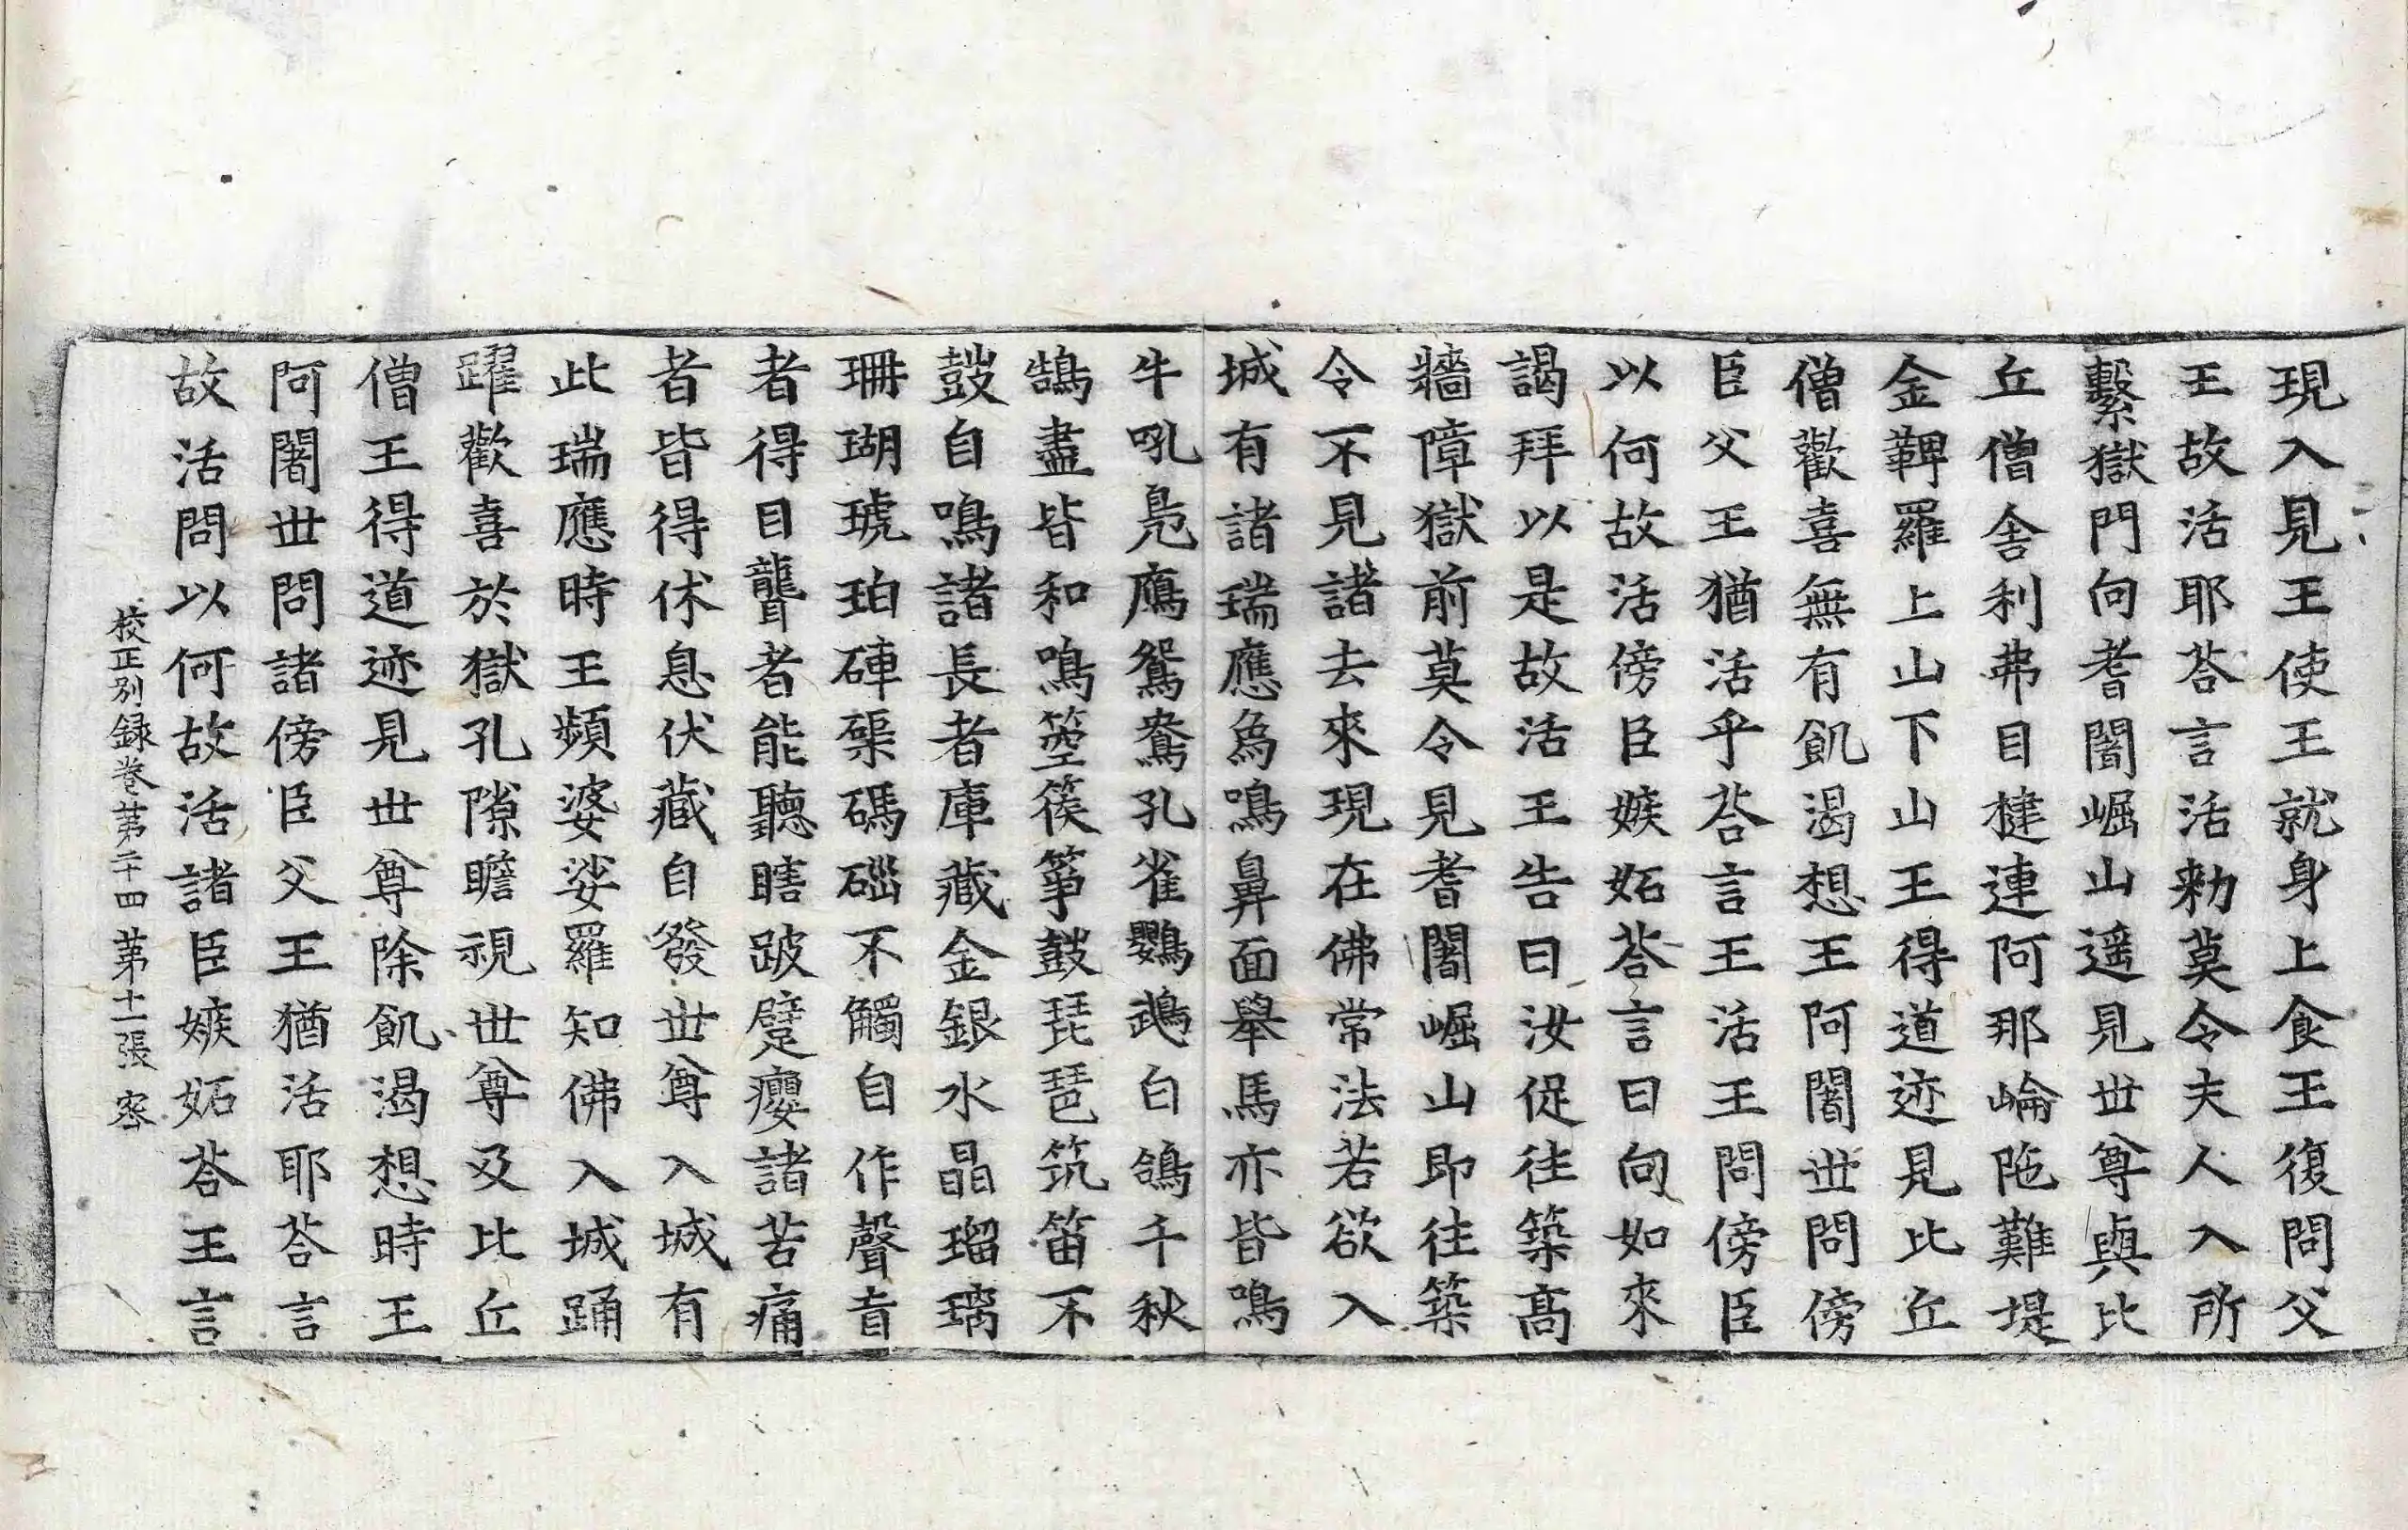 現入見王使王就身上食王復問父
王故活耶荅言活勑莫令夫人入所
繫獄門向耆闍崛山遥見丗尊與比
丘僧舍利弗目揵連阿那崘阤難堤
金鞞羅上山下山王得道迹見比丘
僧歡喜無有飢渴想王阿闍丗問傍
臣父王猶活乎荅言王活王問傍臣
以何故活傍臣嫉妬荅言曰向如來
謁拜以是故活王告曰汝促往築高
牆障獄前莫令見耆闍崛山即往築
令不見諸去來現在佛常法若欲入
城有諸瑞應為鳴鼻面舉馬亦皆鳴
牛吼鳧鴈鴛鴦孔雀鸚鵡白鴿千秋
鵠盡皆和鳴箜篌箏鼓琵琶筑笛不
鼓自鳴諸長者庫藏金銀水晶瑠璃
珊瑚琥珀硨磲碼碯不觸自作聲盲
者得目聾者能聽瞎跛躄癭諸苦痛
者皆得休息伏藏自發丗尊入城有
此瑞應時王頻婆娑羅知佛入城踊
躍歡喜於獄孔隙瞻視丗尊及比丘
僧王得道迹見丗尊除飢渴想時王
阿闍丗問諸傍臣父王猶活耶荅言
故活問以何故活諸臣嫉妬荅王言
校正別録卷苐二十四 苐十一張 容